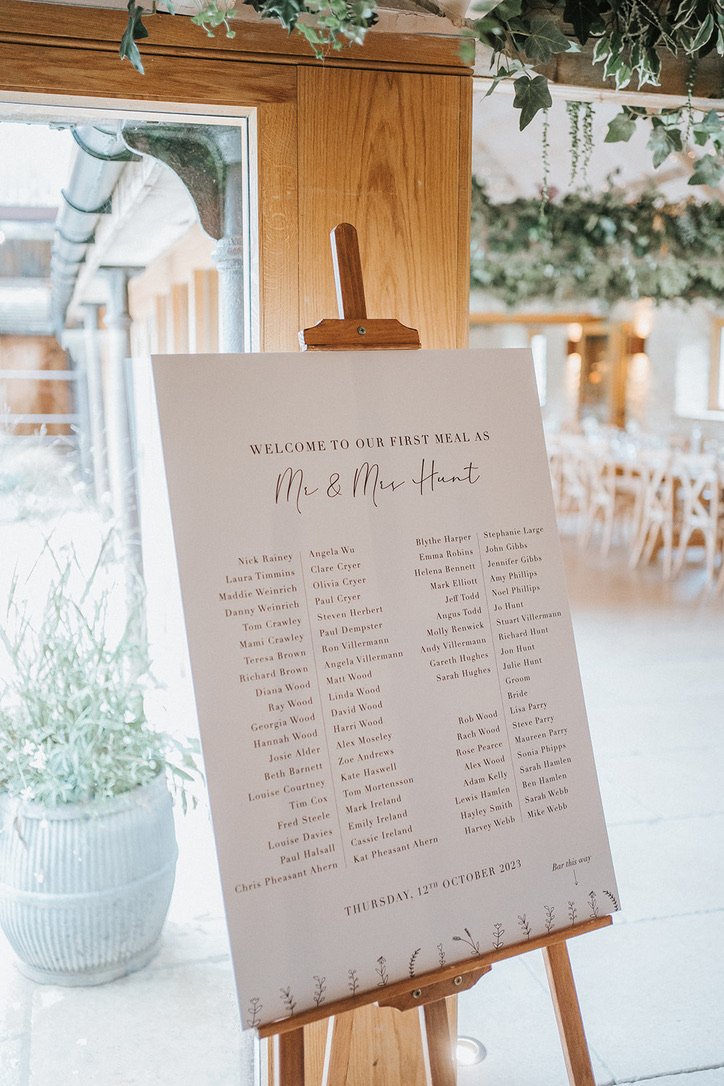 WELCOME TO OUR FIRST MEAL AS
Mr & Mrs Hunt
Nick Rainey
Laura Timmins
Maddie Weinrich
Danny Weinrich
Tom Crawley
Mami Crawley
Teresa Brown
Richard Brown
Diana Wood
Ray Wood
Georgia Wood
Hannah Wood
Josie Alder
Beth Barnett
Louise Courtney
Tim Cox
Fred Steele
Louise Davies
Paul Halsall
Chris Pheasant Ahern
Angela Wu
Clare Cryer
Olivia Cryer
Paul Cryer
Steven Herbert
Paul Dempster
Ron Villermann
Angela Villermann
Matt Wood
Linda Wood
David Wood
Harri Wood
Alex Moseley
Zoe Andrews
Kate Haswell
Tom Mortensson
Mark Ireland
Emily Ireland
Cassie Ireland
Kat Pheasant Ahern
Blythe Harper
Emma Robins
Helena Bennett
Mark Elliott
Jeff Todd
Angus Todd
Molly Renwick
Andy Villermann
Gareth Hughes
Sarah Hughes
Rob Wood
Rach Wood
Rose Pearce
Alex Wood
Adam Kelly
Lewis Hamlen
Hayley Smith
Harvey Webb
Stephanie Large
John Gibbs
Jennifer Gibbs
Amy Phillips
Noel Phillips
Jo Hunt
Stuart Villermann
Richard Hunt
Jon Hunt
Julie Hunt
Groom
Bride
Lisa Parry
Steve Parry
Maureen Parry
Sonia Phipps
Sarah Hamlen
Ben Hamlen
Sarah Webb
Mike Webb
THURSDAY, 12TH OCTOBER 2023
Bar this way